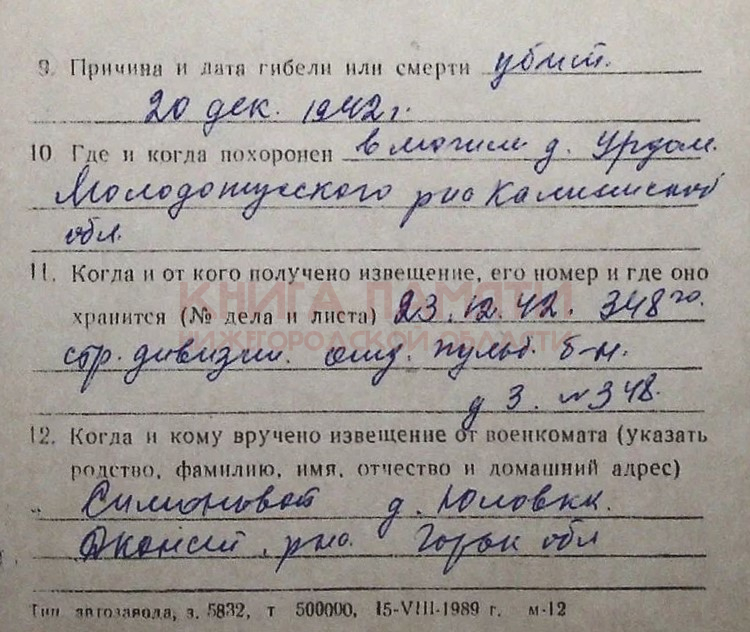 9. Причина и дата гибели или смерти убит.
20 дек. 1942 г.
10 Где и когда похоронен в могиле д. Урдом.
Молодотудского р-на Калининской
обл.
11. Когда и от кого получено извещение, его номер и где оно
хранится (№ дела и листа) 23.12.42. 348 го.
КНИГА ПАМЯТИ
НИЖЕГОРОДСКОЙ ОБЛАСТИ
стр. дивизии. отд. пульб. б-н.
д 3. № 348.
12. Когда и кому вручено извещение от военкомата (указать
родство, фамилию, имя, отчество и домашний адрес)
Симоновой д. Юловка
р-на. Горьк обл
Тип. автозавода, з. 5832, т 500000, 15-VIII-1989 г. м-12